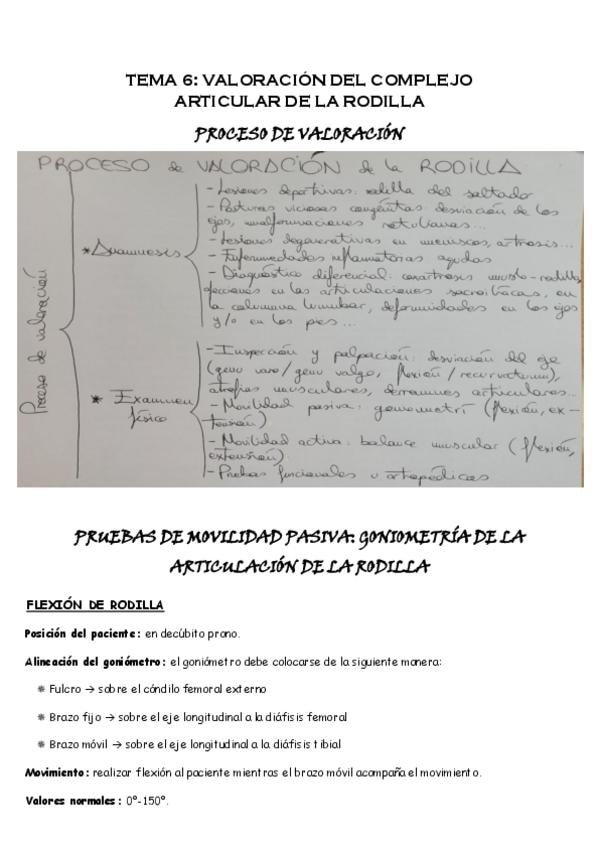 TEMA 6: VALORACIÓN DEL COMPLEJO
ARTICULAR DE LA RODILLA
PROCESO DE VALORACIÓN
PROCESO de VALORACIÓN de la RODILLA
Proceso de valoración
* Anamnesis
- Lesiones deportivas: rodilla del saltador
- Posturas viciosas congénitas: desviación de los
ejes, malformaciones rotulianas...
- Lesiones degenerativas en meniscos, artrosis...
- Enfermedades inflamatorias agudas
- Diagnóstico diferencial: coxartrosis muslo-rodilla,
afecciones en las articulaciones sacroilíacas, en
la columna lumbar, deformidades en los ejes
y/o en los pies...
* Examen
físico
- Inspección y palpación: desviación del eje
(genu varo/genu valgo, flexión/recurvatum),
atrofias musculares, derrames articulares...
- Movilidad pasiva: goniometrí (flexión, ex-
tensión)
- Movilidad activa: balance muscular (flexión,
extensión)
- Pruebas funcionales u ortopédicas
PRUEBAS DE MOVILIDAD PASIVA: GONIOMETRÍA DE LA
ARTICULACIÓN DE LA RODILLA
FLEXIÓN DE RODILLA
Posición del paciente: en decúbito prono.
Alineación del goniómetro: el goniómetro debe colocarse de la siguiente manera:
Fulcro → sobre el cóndilo femoral externo
Brazo fijo → sobre el eje longitudinal a la diáfisis femoral
Brazo móvil → sobre el eje longitudinal a la diáfisis tibial
Movimiento: realizar flexión al paciente mientras el brazo móvil acompaña el movimiento.
Valores normales: 0°-150°.